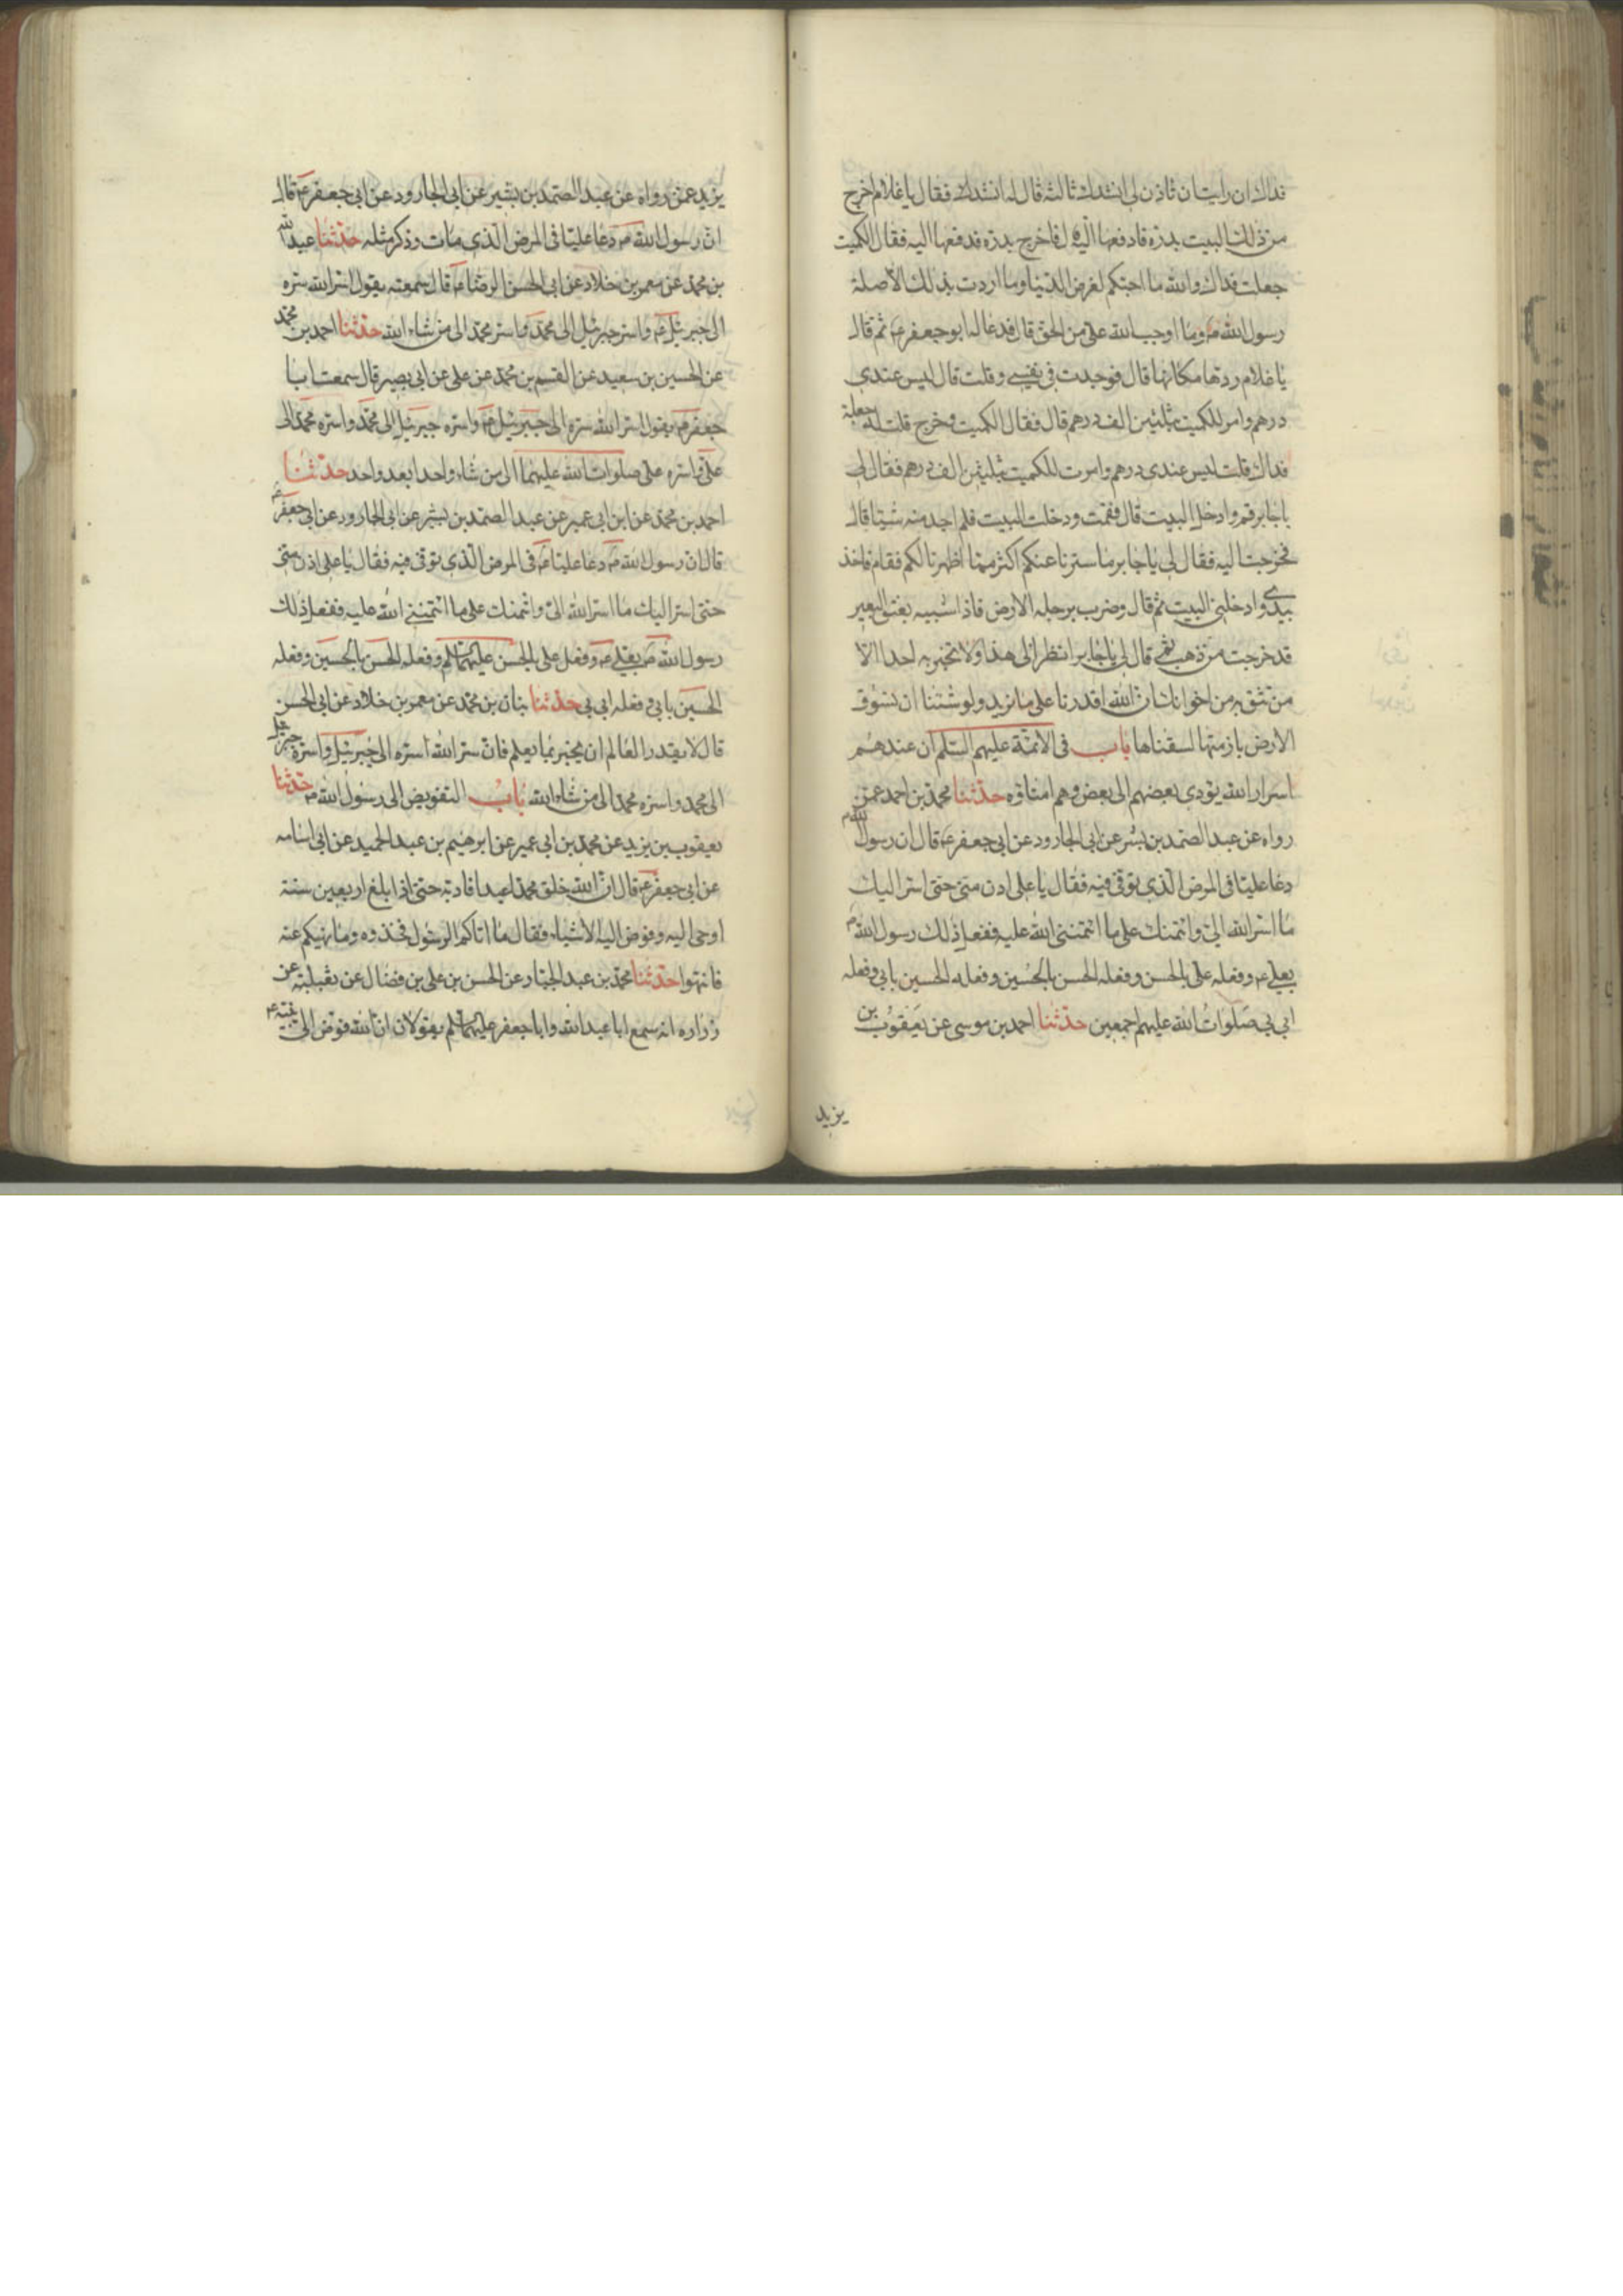 فداك ان رايت ان تاذن لى انشدك ثالثه قال له انشدك فقال يا غلام اخرج
من ذلك البيت بدره فادفعها اليه قال فاخرج بدره فدفعها اليه فقال الكميت
جعلت فداك والله ما احبكم لغرض الدنيا وما اردت بذلك الا صلة
رسول الله ص وما اوجب الله على من الحق قال فدعا له ابو جعفر ع ثم قال
يا غلام ردها مكانها قال فوجدت فى نفسى وقلت قال ليس عندى
درهم وامر للكميت بثلثين الف درهم قال فقال الكميت وخرج قلت له جعلت
فداك قلت ليس عندى درهم وامرت للكميت بثلثين الف درهم فقال لى
يا جابر قم وادخل البيت قال فقمت ودخلت البيت فلم اجد منه شيئا قال
فخرجت اليه فقال لى يا جابر ما سترنا عنكم اكثر مما اظهرنا لكم فقام فاخذ
بيدى وادخلنى البيت ثم قال وضرب برجله الارض فاذا شبيه بعنق البعير
قد خرجت من ذهب ثم قال لى يا جابر انظر الى هذا ولا تخبر به احدا الا
من تثق به من اخوانك ان الله اقدرنا على ما نريد ولو شئنا ان نسوق
الارض بازمتها لسقناها باب فى الائمة عليهم السلم ان عندهم
اسرار الله يؤدى بعضهم الى بعض وهم امناؤه حدثنا محمد بن احمد عمن
رواه عن عبد الصمد بن بشر عن ابى الجارود عن ابى جعفر ع قال ان رسول الله ص
دعا عليا فى المرض الذى توفى فيه فقال يا على ادن منى حتى اسر اليك
ما اسر الله الى وائتمنك على ما ائتمننى الله عليه ففعل ذلك رسول الله ص
بعلى ع وفعله على بالحسن وفعله الحسن بالحسين وفعله الحسين بابى وفعله
ابى بى صلوات الله عليهم اجمعين حدثنا احمد بن موسى عن يعقوب بن
يزيد
يزيد عمن رواه عن عبد الصمد بن بشير عن ابى الجارود عن ابى جعفر ع قال
ان رسول الله ص دعا عليا فى المرض الذى مات وذكر مثله حدثنا عبد الله
بن محمد عن معمر بن خلاد عن ابى الحسن الرضا ع قال سمعته يقول اسر الله سره
الى جبرئيل ع واسر جبرئيل الى محمد واسر محمد الى من شاء الله حدثنا احمد بن محمد
عن الحسين بن سعيد عن القسم بن محمد عن على عن ابى بصير قال سمعت ابا
جعفر ع يقول اسر الله سره الى جبرئيل ع واسره جبرئيل الى محمد واسره محمد الى
على واسره على صلوات الله عليهما الى من شاء واحدا بعد واحد حدثنا
احمد بن محمد عن ابن ابى عمير عن عبد الصمد بن بشر عن ابى الجارود عن ابى جعفر ع
قال ان رسول الله ص دعا عليا ع فى المرض الذى توفى فيه فقال يا على ادن منى
حتى اسر اليك ما اسر الله الى وائتمنك على ما ائتمننى الله عليه ففعل ذلك
رسول الله ص بعلى ع وفعل على بالحسن عليهما السلم وفعله الحسن بالحسين وفعله
الحسين بابى وفعله ابى بى حدثنا بنان بن محمد عن معمر بن خلاد عن ابى الحسن
قال لا يقدر العالم ان يخبر بما يعلم فان سر الله اسره الى جبرئيل واسره جبرئيل
الى محمد واسره محمد الى من شاء الله باب التفويض الى رسول الله ص حدثنا
يعقوب بن يزيد عن محمد بن ابى عمير عن ابرهيم بن عبد الحميد عن ابى اسامه
عن ابى جعفر ع قال ان الله خلق محمدا عبدا فادبه حتى اذا بلغ اربعين سنة
اوحى اليه وفوض اليه الاشياء فقال ما اتاكم الرسول فخذوه وما نهيكم عنه
فانتهوا حدثنا محمد بن عبد الجبار عن الحسن بن على بن فضال عن ثعلبة عن
زراره انه سمع ابا عبد الله وابا جعفر عليهما السلم يقولان ان الله فوض الى نبيه ع